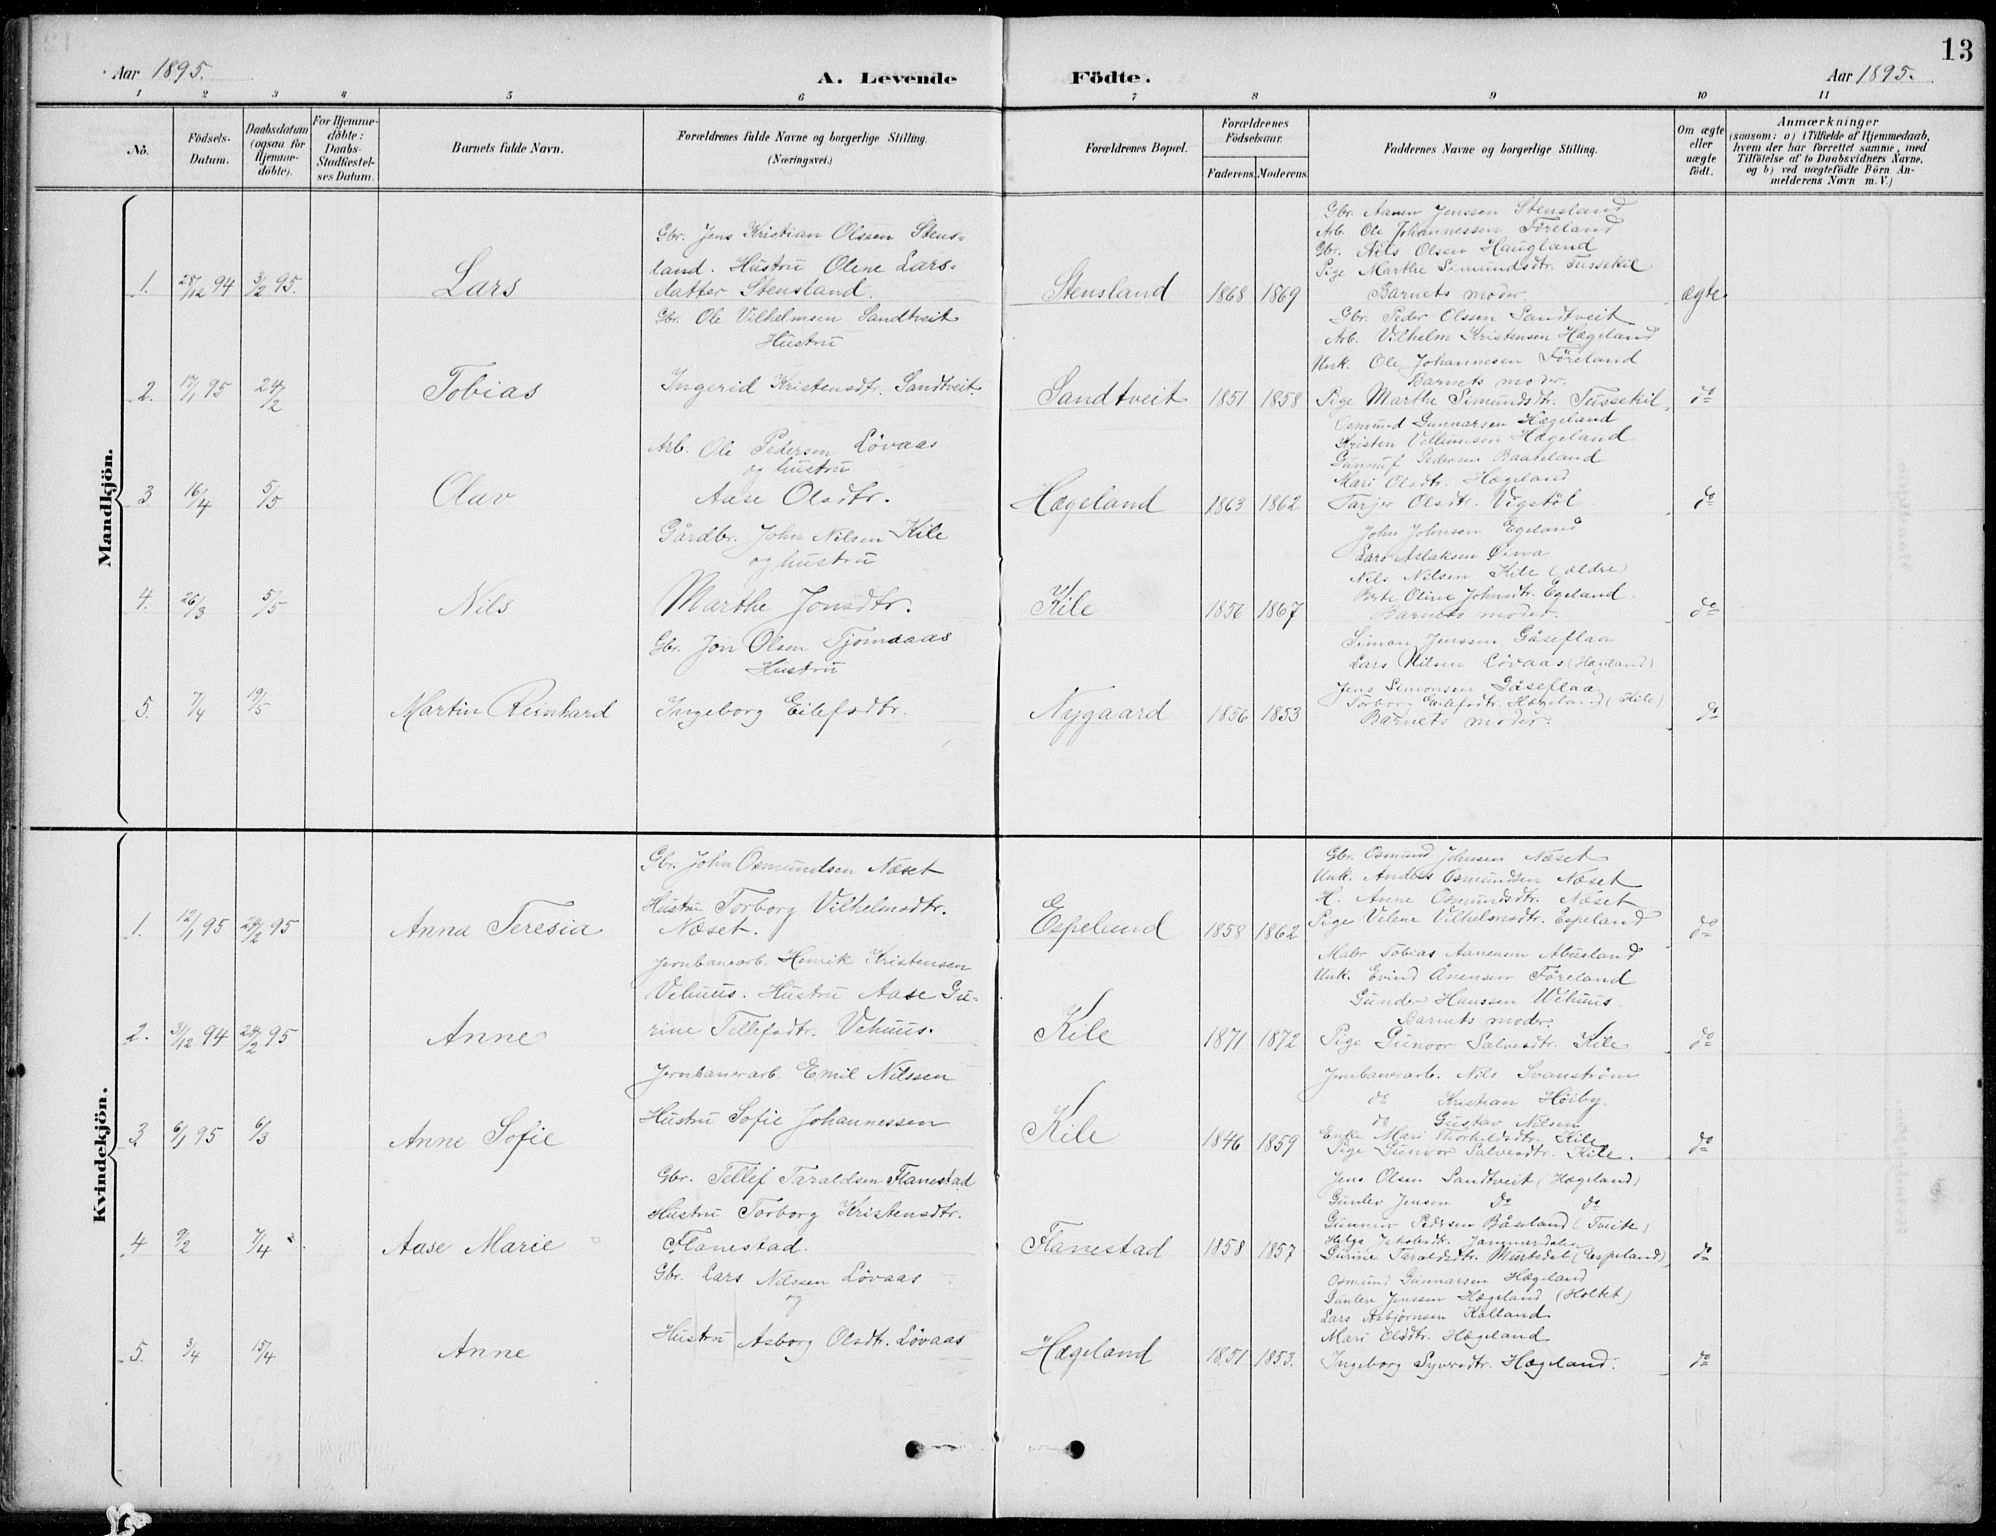 13
Aar 1895.
A. Levende Födte.
Aar 1895.
1 2 3 4 5 6 7 8 9 10 11
No.
Födsels-Datum.
Daabsdatum (ogsaa for Hjemmedöbte).
For Hjemmedöbte: Daabs-Stadfæstelses Datum.
Barnets fulde Navn.
Forældrenes fulde Navne og borgerlige Stilling. (Næringsvei.)
Forældrenes Bopæl.
Forældrenes Födselsaar.
Faderens. Moderens.
Faddernes Navne og borgerlige Stilling.
Om ægte eller uægte födt.
Anmærkninger
(saasom: a) i Tilfælde af Hjemmedaab,
hvem der har forrettet samme, med
Tilföielse af to Daabsvidners Navne,
og b) ved uægtefödte Börn An-
melderens Navn m. V.)
Mandkjön.
1. 28/12 94 3/2 95. Lars
Gbr. Jens Kristian Olssen Stens-
land. Hustru Olene Lars-
datter Stensland.
Stensland 1868 1869
Gbr. Aanen Jenssen Stensland
Arb. Ole Johannessen Föreland
Gbr. Nils Olsen Haugland
Pige Marthe Simundsdtr. Tussekil
Barnets moder.
ægte
2. 17/1 95 24/2 Tobias
Gbr. Ole Vilhelmsen Sandtveit
Hustru
Ingerid Kristensdtr. Sandtveit.
Sandtveit 1851 1858
Gbr. Peder Olssen Sandtveit
Arb. Vilhelm Kristensen Hægeland
Unk. Ole Johannesen Föreland
Barnets moder.
Pige Marthe Simundsdtr. Tussekil.
do
3 16/4 5/5 Olav
Arb. Ole Pedersen Løvaas
og hustru
Aase Olsdtr.
Hægeland 1863 1862
Osmund Gunnarsen Hægeland
Kristen Villumsen Hægeland
Gunnuf Pedersen Baaseland
Mari Olsdtr. Hægeland
Tarjer Olsdtr. Vigstöl
do
4. 26/3 5/5 Nils
Gårdbr. John Nilsen Kile
og hustru
Marthe Jonsdtr.
Kile 1856 1867
John Johnsen Egeland
Lars Aslaksen Øina
Nils Nilsen Kile (ældre)
Berte Oline Johnsdtr. Egeland.
Barnets moder.
do
5. 7/4 19/5 Martin Reinhard
Gbr. Jon Olsen Tjomsaas
Hustru
Ingeborg Eilefsdtr.
Nygaard 1856 1853
Simon Jenssen Gåseflaa
Lars Nilsen Løvaas (Hægeland)
Jens Simonsen Gåseflaa
Torborg Eilefsdtr. Hægeland (Kile)
Barnets moder.
do
Kvindekjön.
1. 12/1 95 24/2 95 Anna Teresia
Gbr. John Osmundsen Næset
Hustru Torborg Vilhelmsdtr.
Næset.
Espelund 1858 1862
Gbr. Osmund Johnsen Næset
Unk. Anders Osmundsen Næset
H. Anne Osmundsdtr. Næset
Pige Velene Vilhelmsdtr. Espeland
do
2. 3/12 94 24/2 95 Anne
Jernbanearb. Henrik Kristensen
Vehuus. Hustru Aase Gu-
rine Tellefsdtr. Vehuus.
Kile 1871 1872
Maler Tobias Aanensen Abusland
Unk. Evind Ånensen Föreland
Gunder Hanssen Wehuus.
Barnets moder.
Pige Gunvor Salvesdtr. Kile
do
3. 6/1 95 6/3 Anne Sofie
Jernbanerarb. Emil Nilssen
Hustru Sofie Johannessen
Kile 1846 1859
Jernbanerarb. Nils Svanström
do Kristian Höiby.
do Gustav Nilsen
Enke Mari Thorkildsdtr. Kile
Pige Gunvor Salvesdtr. Kile.
do
4 9/2 7/4 Aase Marie
Gbr. Tellef Taraldsen Flanestad
Hustru Torborg Kristensdtr.
Flanestad.
Flanestad 1858 1857
Jens Olsen Sandtveit (Hægeland)
Gunlev Jensen do do
Gunnuv Pedersen Båseland (Tveite)
Helga Jakobsdtr. Jammerdalen
Gurine Taraldsdtr. Murtedal (Espeland)
do
5. 3/4 15/4 Anne
Gbr. Lars Nilssen Løvaas
og
Hustru Asborg Olsdtr. Løvaas
Hægeland 1851 1853.
Osmund Gunnarsen Hægeland
Gunlev Jenssen Hægeland (Holtet)
Lars Asbjørnsen Kalland
Mari Olsdtr. Hægeland
Ingeborg Syversdtr. Hægeland.
do